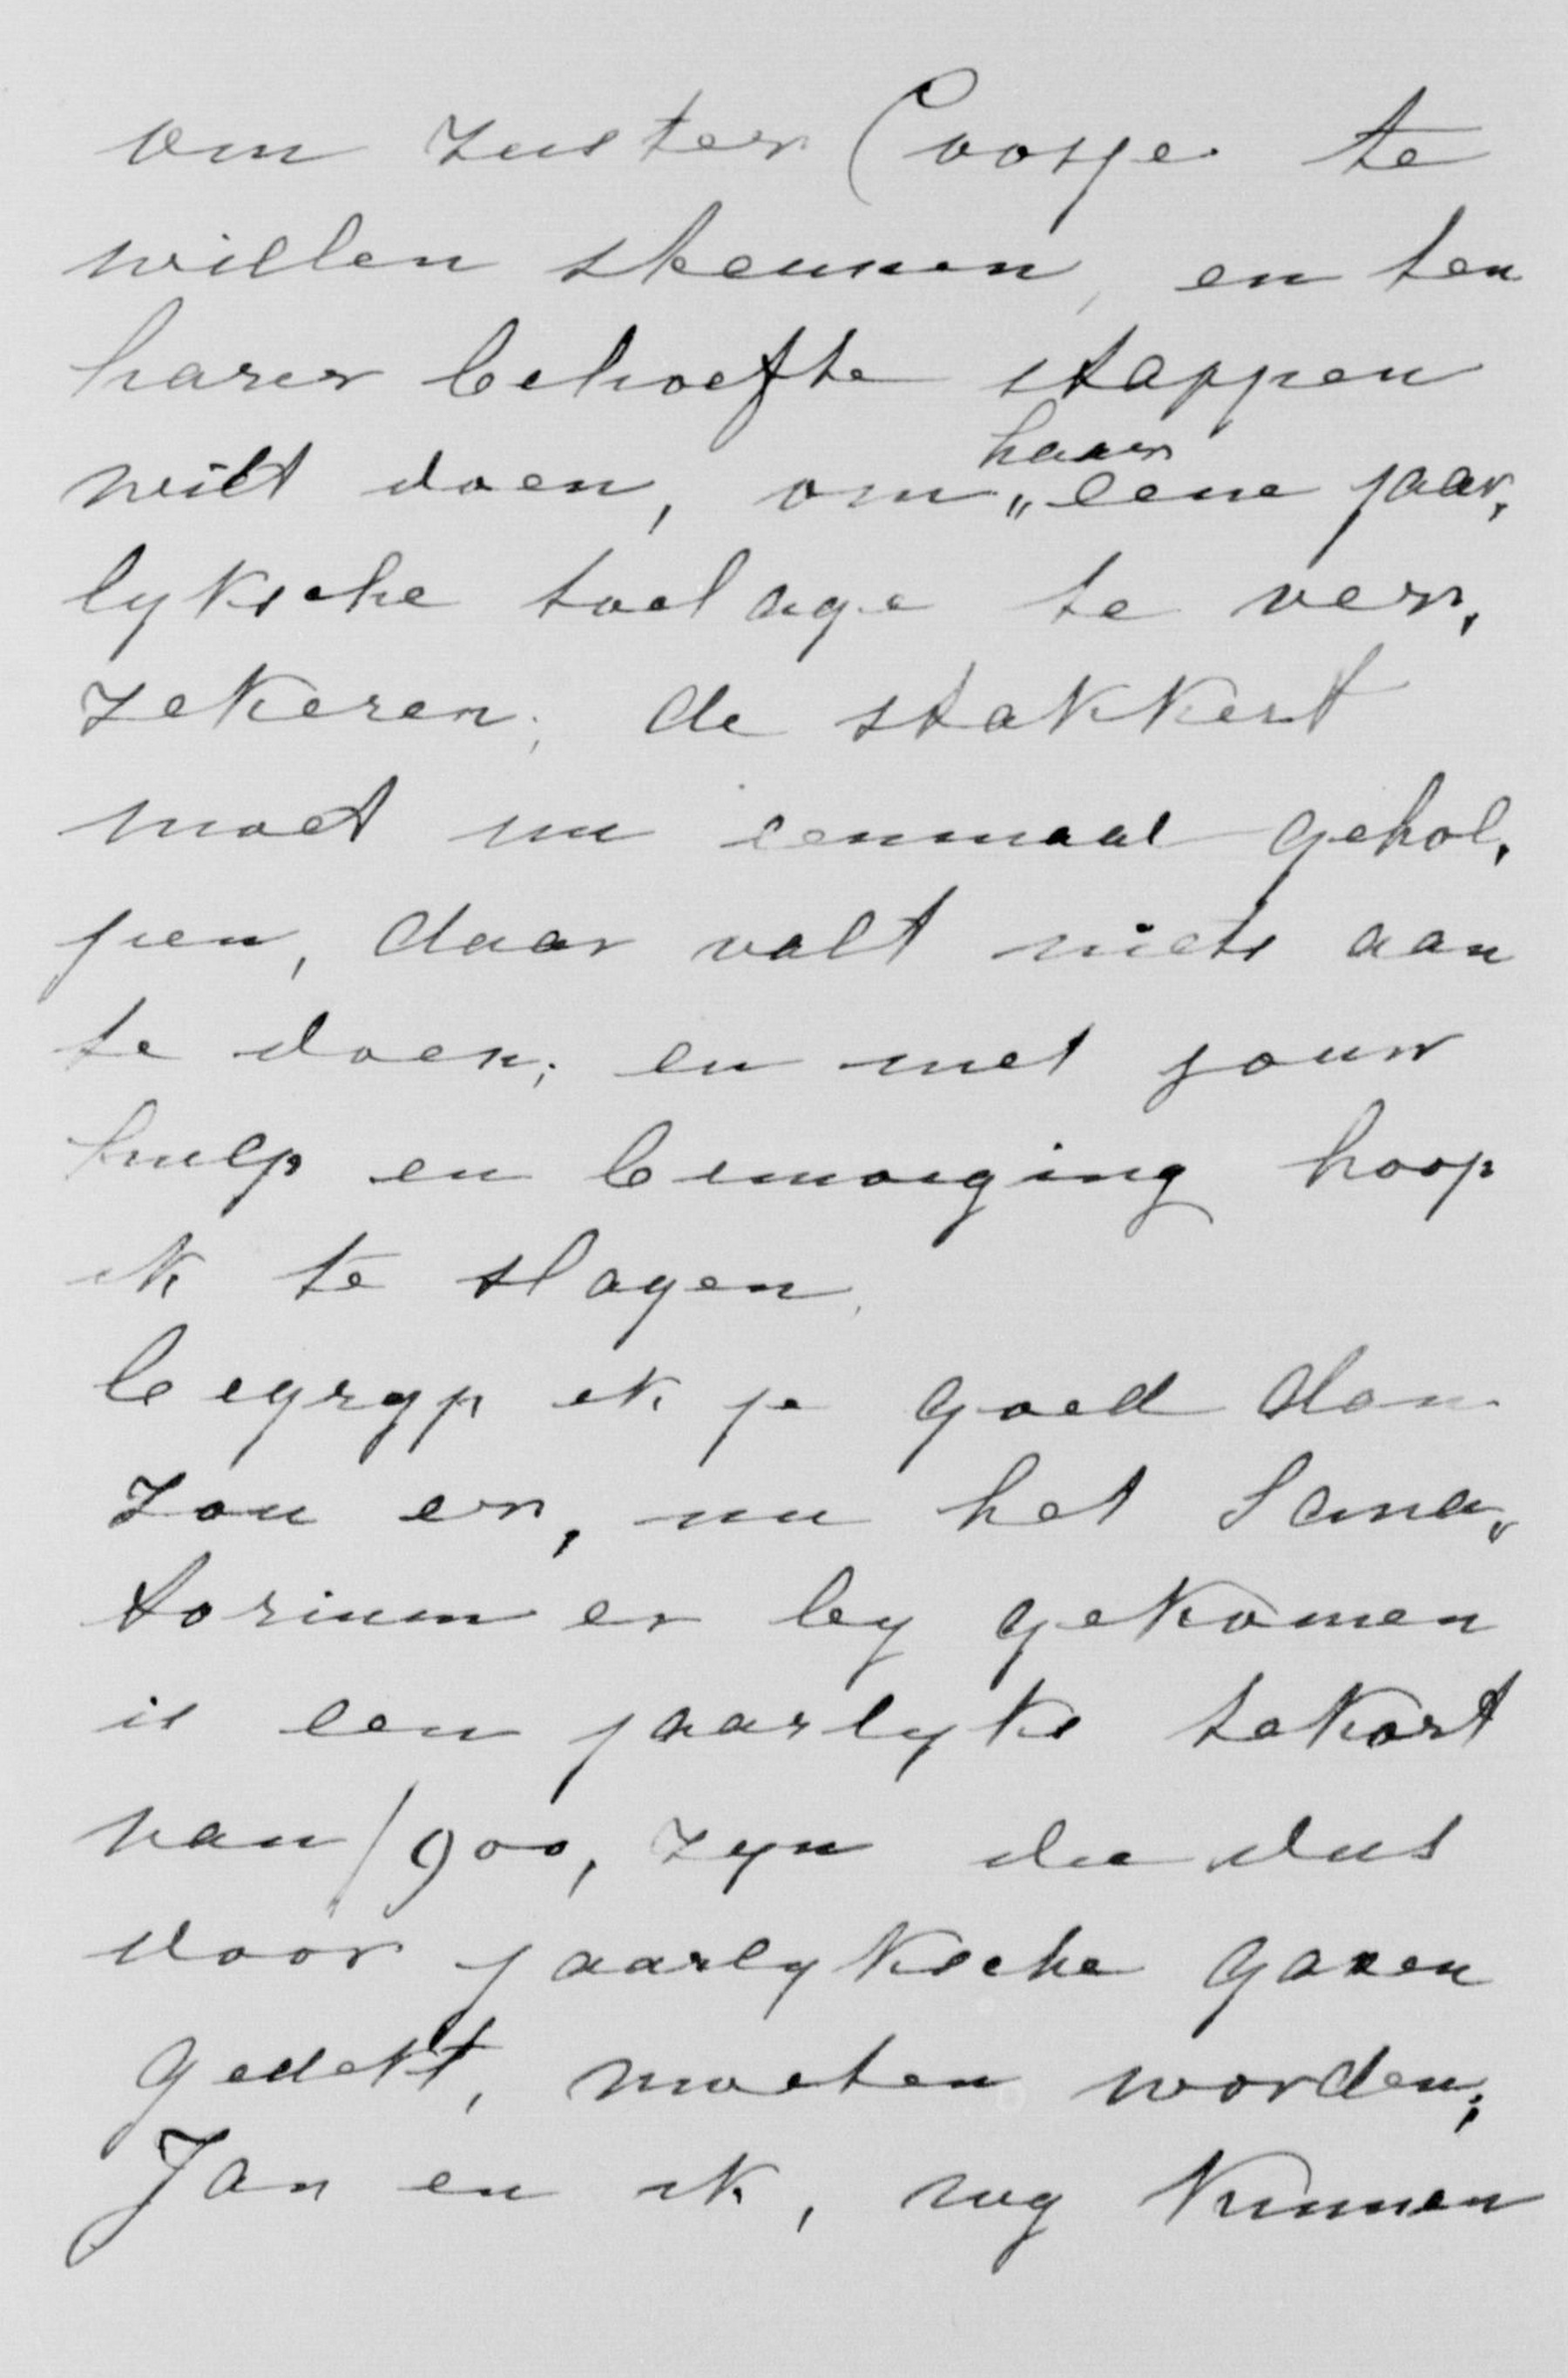 om zuster Coosje te
willen steunen, en ten
harer behoefte stappen
wilt doen, om „ haar eene jaar,
lyksche toelage te ver,
zekeren; de stakkert
moet nu eenmaal gehol,
pen, daar valt niets aan
te doen; en met jouw
hulp en bemoeiging hoop
ik te slagen.
begryp ik je goed dan
zou er, nu het Sana„
torium er by gekomen
is een jaarlyks tekort
van ƒ900, zyn die dus
door jaarlyksche gaven
gedekt, moeten worden;
Jan en ik, wy kunnen